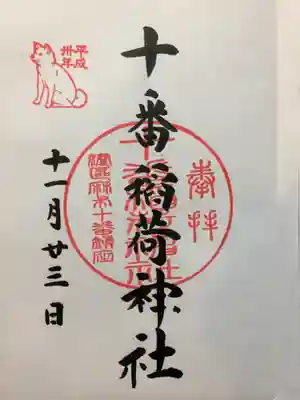 奉拝
十番稲荷神社
平成
卅年
十一月廿三日
港区麻布十番鎮座